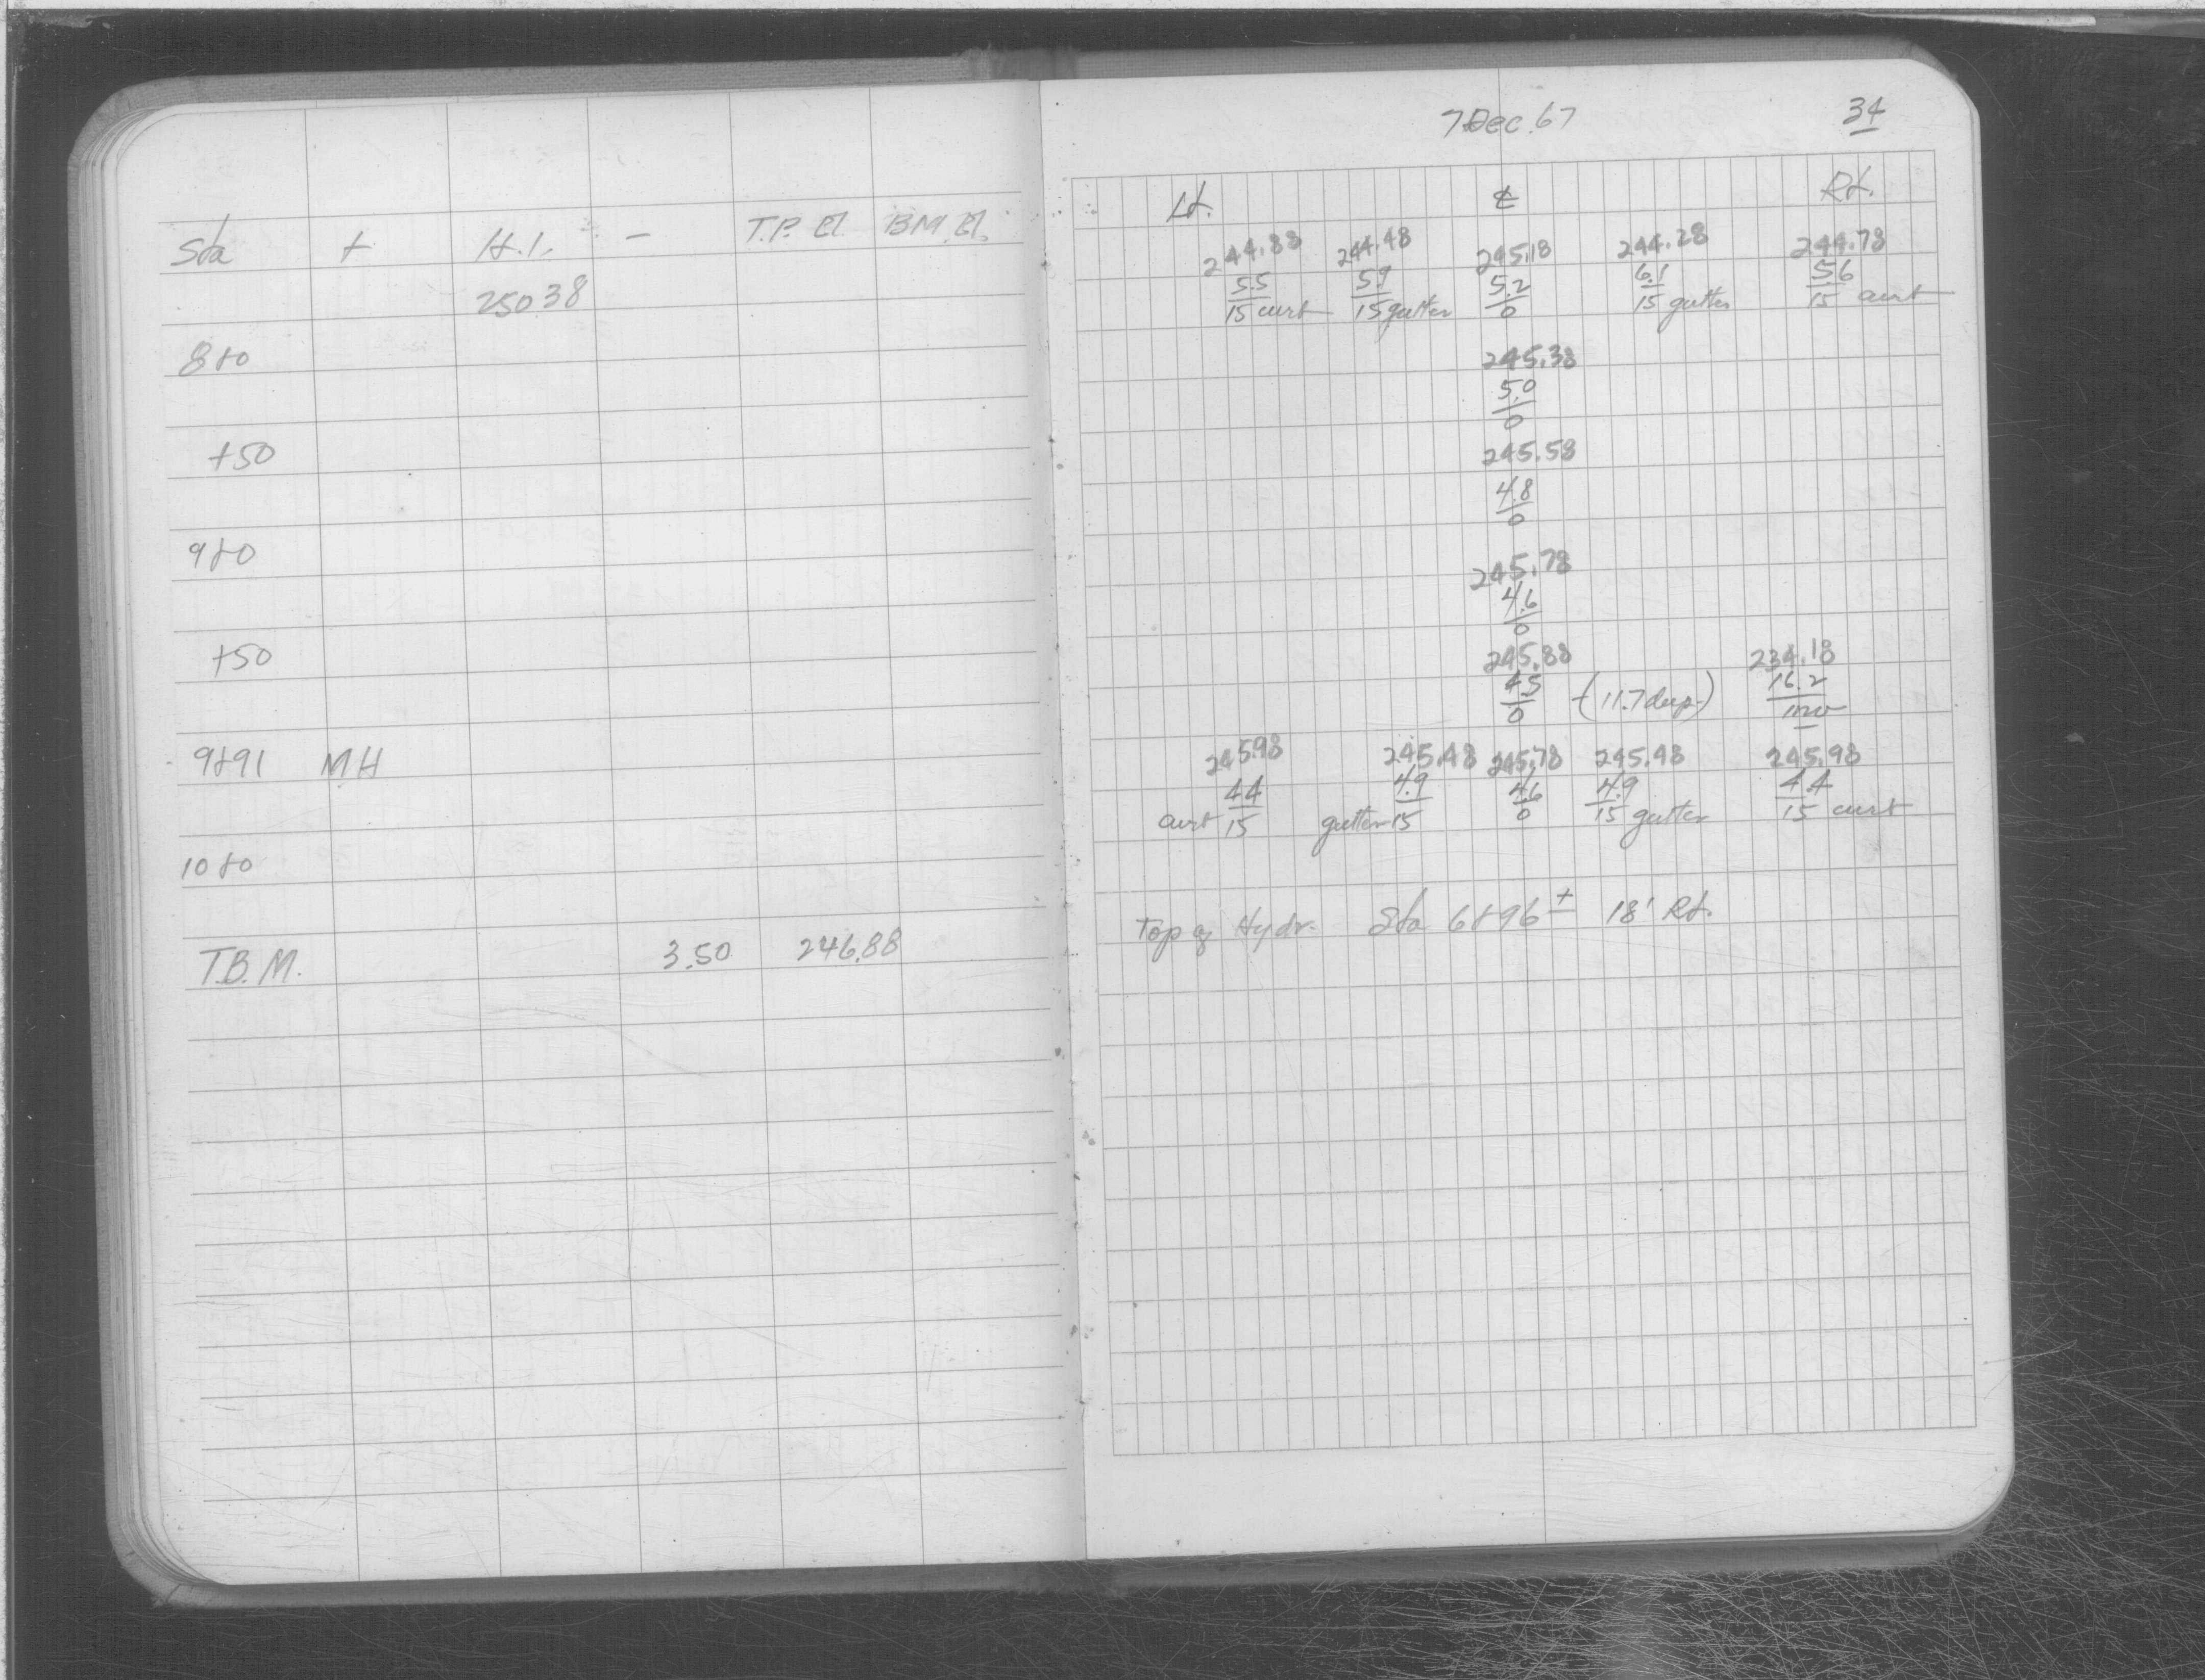 7 Dec. 67 34
Sta + H.I. - T.P. El. B.M. El.
250.38
8+0
+50
9+0
+50
9+91 MH
10+0
T.B.M. 3.50 246.88
Lt. ℄ Rt.
244.88 244.48 245.18 244.28 244.78
5.5 5.9 5.2 6.1 5.6
15 curb 15 gutter 0 15 gutter 15 curb
245.38
5.0
0
245.58
4.8
0
245.78
4.6
0
245.88 234.18
4.5 (11.7 deep) 16.2
0 inv
245.98 245.48 245.78 245.48 245.98
4.4 4.9 4.6 4.9 4.4
curb 15 gutter 15 0 15 gutter 15 curb
Top of Hydr. Sta 6+96 ± 18' Rt.